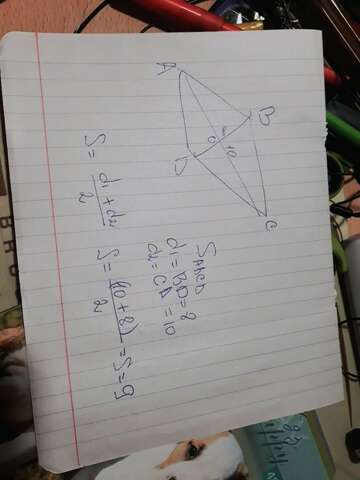 A
B
C
D
O
10
SABCD
d1 = BD = 8
d2 = CA = 10
S = d1 + d2 / 2 S = (10 + 8) / 2 = S = 9